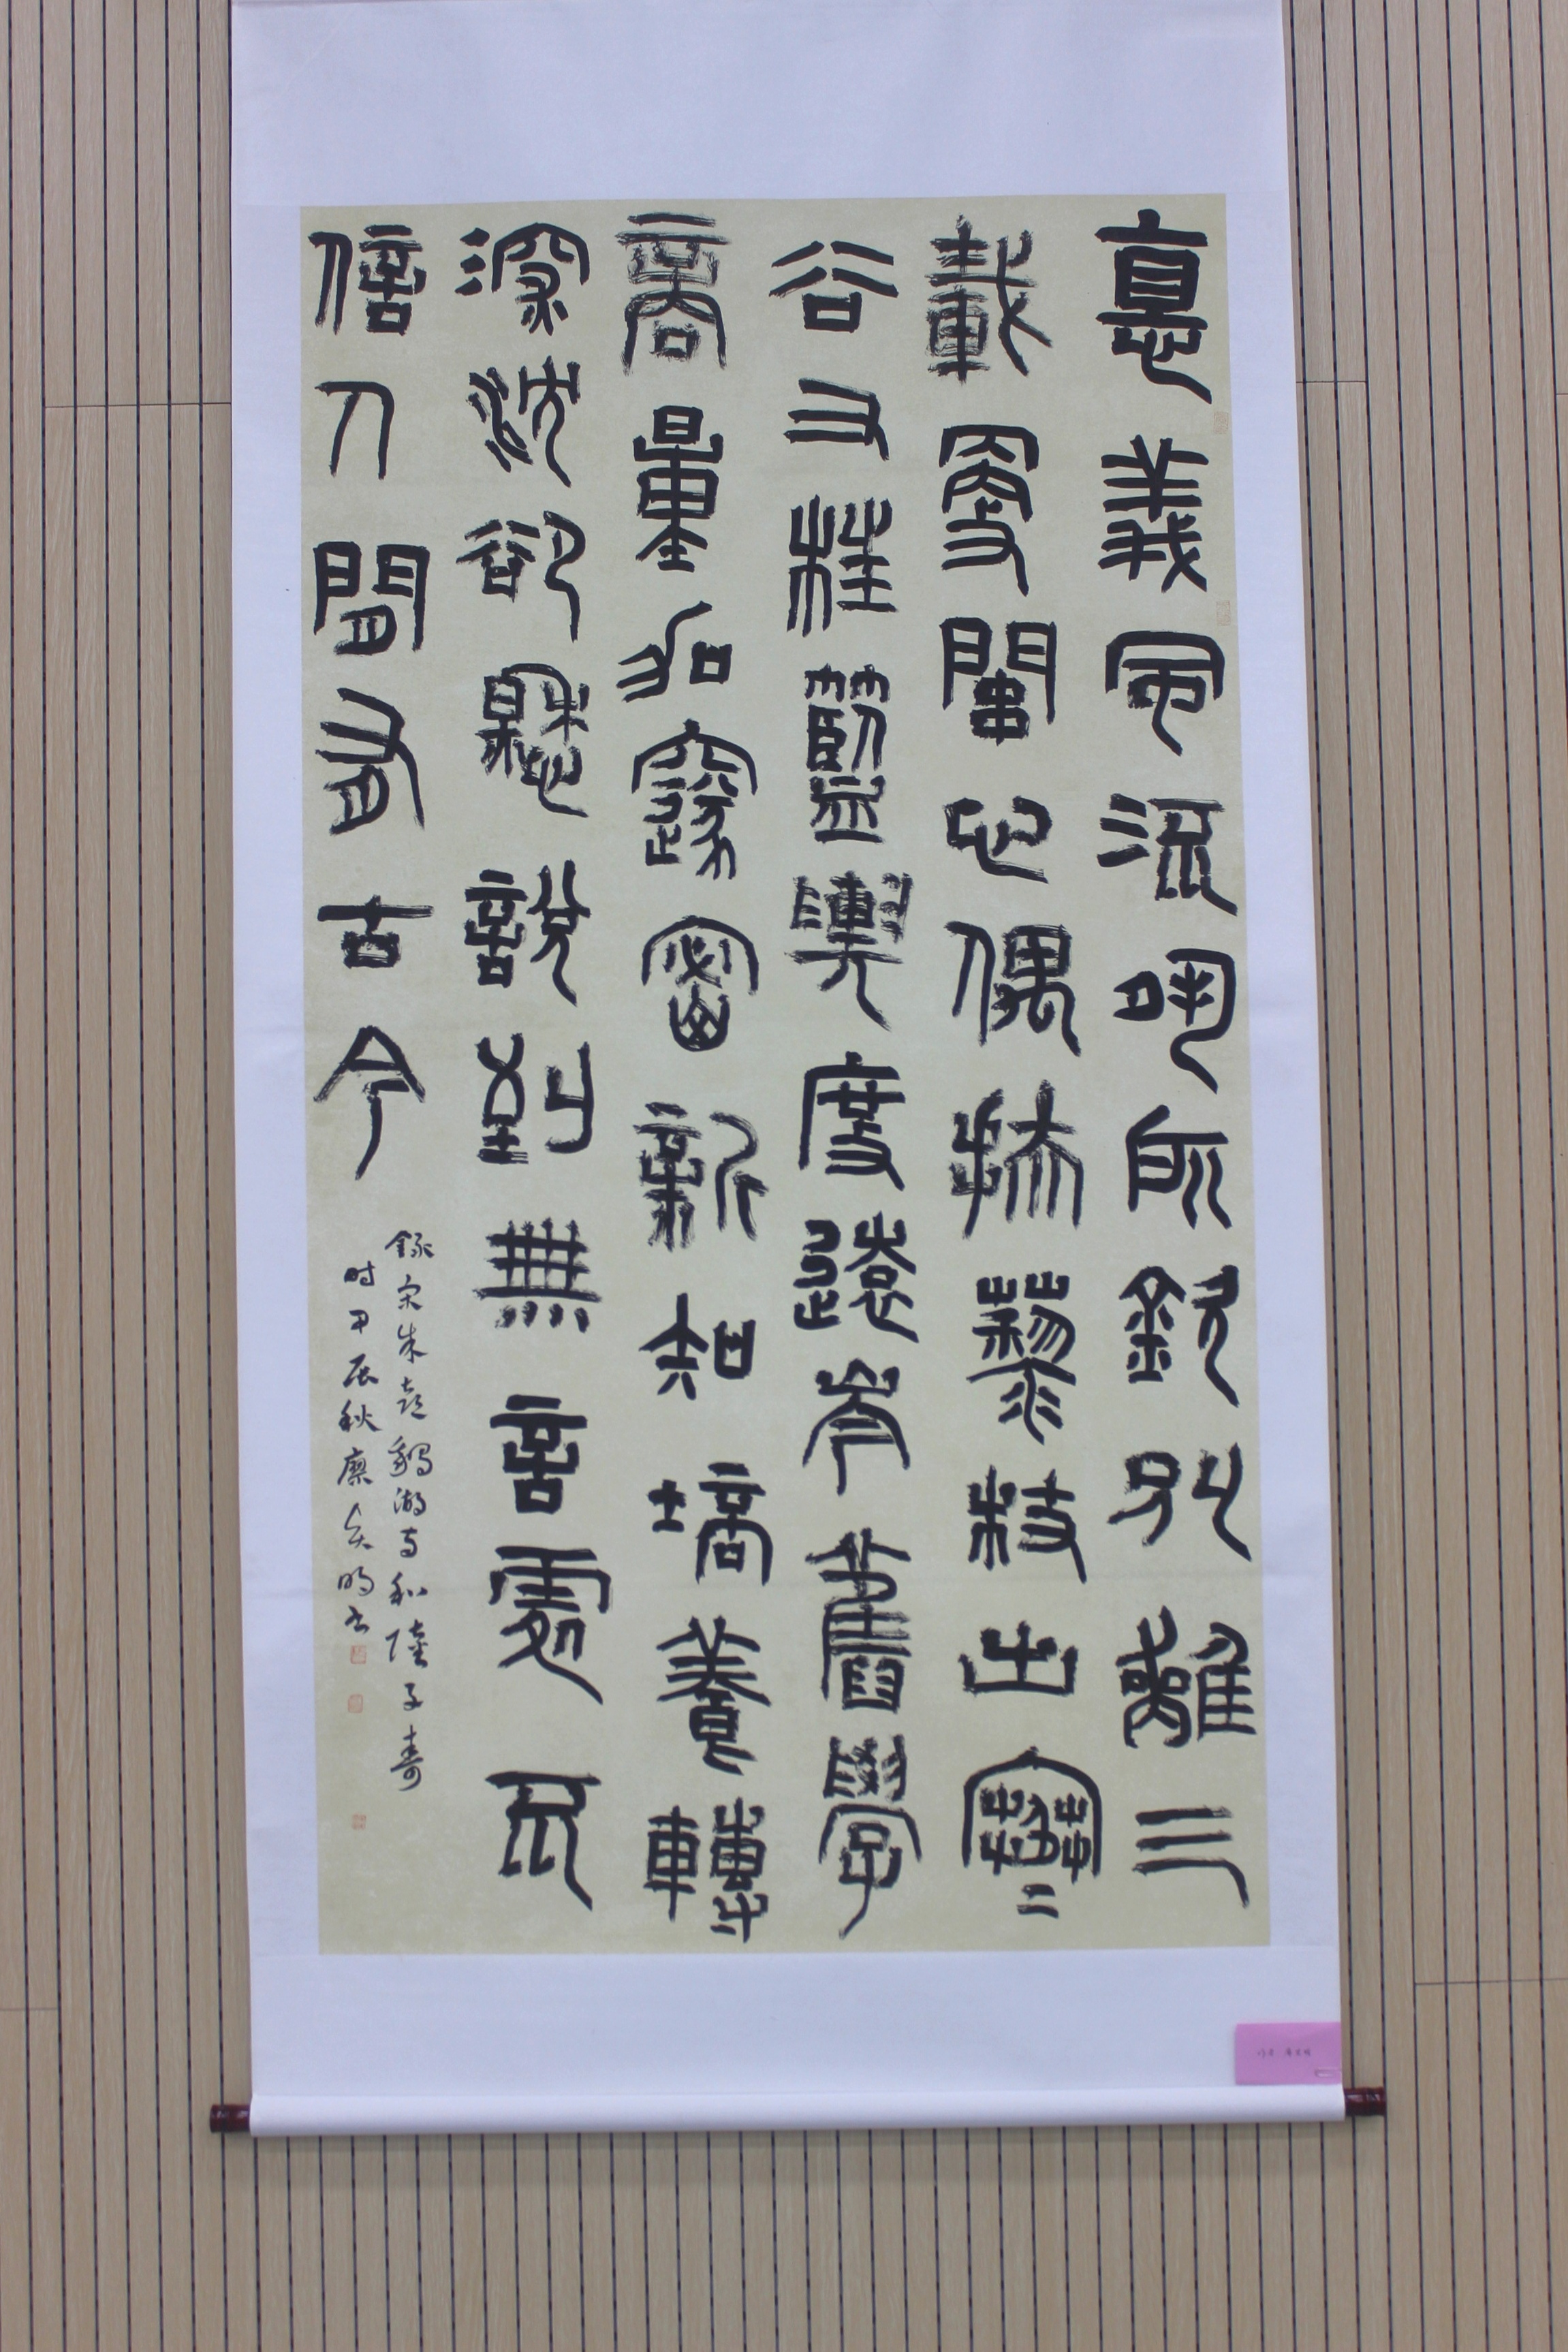 悳義風流夙所欽別離三
載更關心偶扶藜杖出寒
谷又枉籃輿度遠岑舊學
商量加邃密新知培養轉
深沈卻懸說到無言處不
信人閒有古今
錄宋朱熹鵝湖寺和陸子壽
时甲辰秋 明书